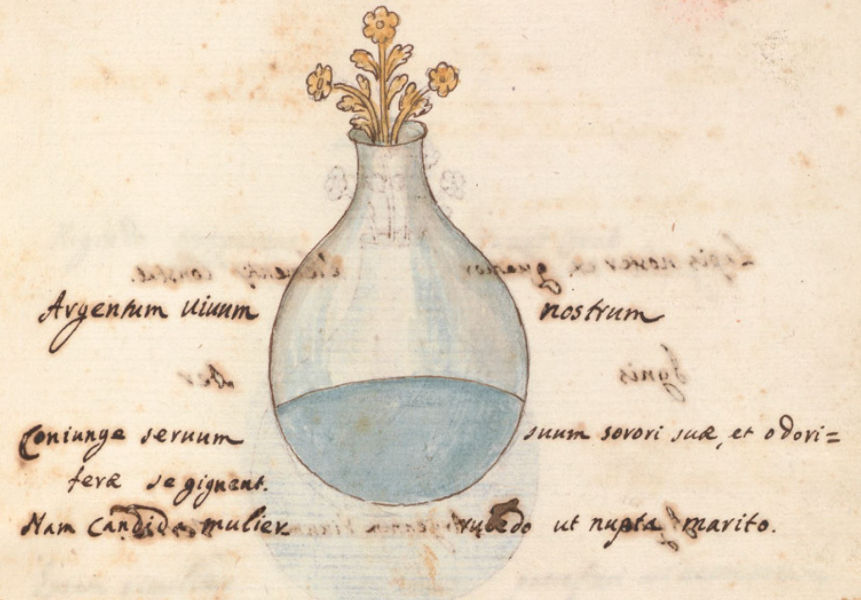 Argentum uiuum nostrum
Coniunge seruum suum sorori suæ, et odori=
feræ se gignent.
Nam Candida mulier rubedo ut nupta marito.